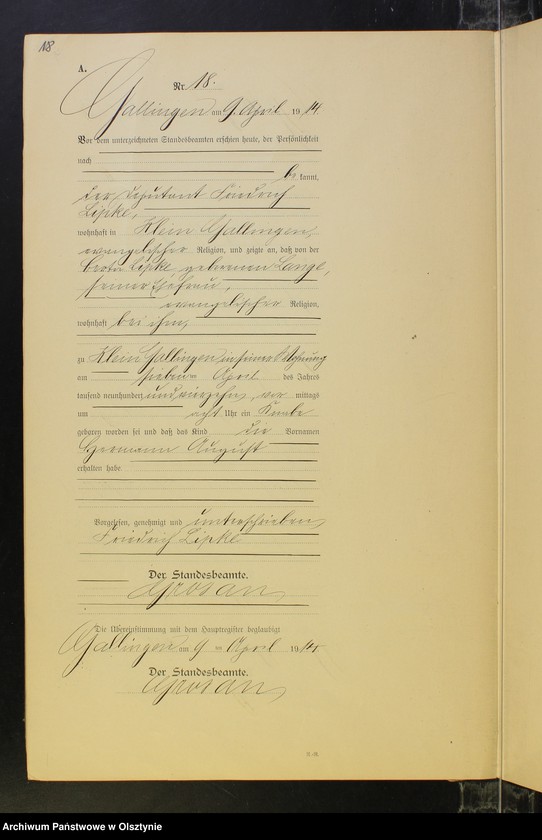 18
A.
Nr. 18.
Gallingen am 9. April 1914.
Vor dem unterzeichneten Standesbeamten erschien heute, der Persönlichkeit
nach
be kannt,
der Friedrich
Lipke,
wohnhaft in Klein Gallingen,
evangelischer Religion, und zeigte an, daß von der
Lipke, geborenen Lange,
seiner Ehefrau,
evangelischer Religion,
wohnhaft bei ihm,
zu Klein Gallingen, in seiner Wohnung
am sieben ten April des Jahres
tausend neunhundert und vierzehn, vor mittags
um acht Uhr ein Knabe
geboren worden sei und daß das Kind die Vornamen
Hermann August
erhalten habe
Vorgelesen, genehmigt und unterschrieben
Friedrich Lipke
Der Standesbeamte.
Die Übereinstimmung mit dem Hauptregister beglaubigt
Gallingen am 9 ten April 1914
Der Standesbeamte.
Archiwum Państwowe w Olsztynie